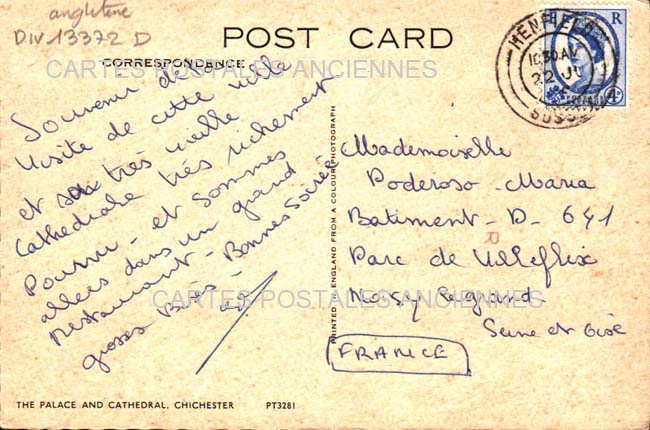 angleterre
DIV 13372 D
POST CARD
CORRESPONDENCE
CARTES POSTALES ANCIENNES
Souvenir de
Visite de cette ville
et sa très vieille
Cathédrale très richement
Pourvu - et sommes
allées dans un grand
Restaurant - Bonnes Soirée
grosses Bises -
HENFIELD
10.30 AM
22 JL
SUSSEX
E R
4D
Mademoiselle
Poderoso - Maria
Batiment - D - 641
Parc de Villeflix
Noisy le grand
Seine et Oise
FRANCE
CARTES POSTALES ANCIENNES
PRINTED IN ENGLAND FROM A COLOUR PHOTOGRAPH
THE PALACE AND CATHEDRAL, CHICHESTER PT3281